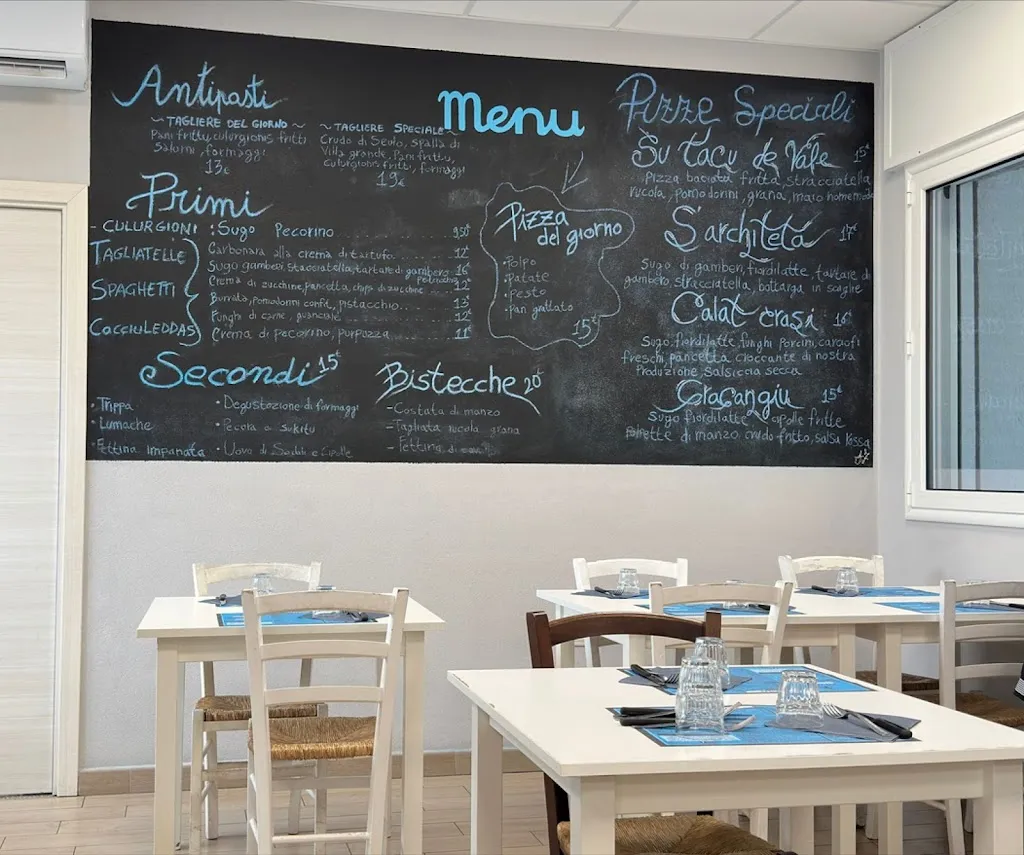 Antipasti
~TAGLIERE DEL GIORNO~
Pani frittu, culurgionis fritti
Salumi, formaggi
13€
~TAGLIERE SPECIALE~
Crudo di Seulo, spalla di
Villa grande, Pani frittu,
culurgionis fritti, formaggi
19€
Menu
Primi
- CULURGIONI : Sugo Pecorino 9,50
TAGLIATELLE
SPAGHETTI
COCCIULEDDAS
Carbonara alla crema di tartufo 12€
Sugo gamberi, stracciatella, tartare di gambero 16€
Crema di zucchine, pancetta, chips di zucchine 12€
Burrata, pomodorini confit, pistacchio 13€
Funghi di carne, guanciale 12€
Crema di pecorino, purpuzza 11€
Pizza
del giorno
• Polpo
• Patate
• Pesto
• Pan grattato
15€
Secondi 15€
• Trippa
• Lumache
• Fettina impanata
• Degustazione di formaggi
• Pecora a
• Uova di e cipolle
Bistecche 20€
- Costata di manzo
- Tagliata rucola grana
- Fettina di
Pizze Speciali
Su Tacu de Vale 15€
Pizza baciata fritta, stracciatella
rucola, pomodorini, grana, maio homemade
S'architeta 17€
Sugo di gamberi, fiordilatte, tartare di
gambero, stracciatella, bottarga in scaglie
Calat crasi 16€
Sugo, fiordilatte, funghi porcini, carciofi
freschi, pancetta croccante di nostra
Produzione, salsiccia secca
Cracangiu 15€
Sugo fiordilatte, cipolle fritte
Polpette di manzo, crudo fritto, salsa rossa